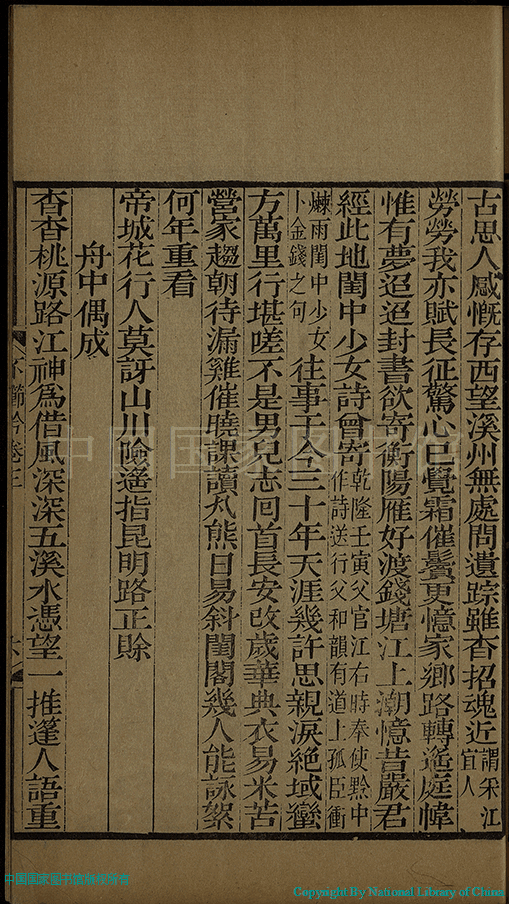 古思人感慨存西望溪州無處問遺踪雖杳招魂近謂采江宜人
勞勞我亦賦長征驚心已覺霜催鬢更憶家鄉路轉遙庭幃
惟有夢迢迢封書欲寄衡陽雁好渡錢塘江上潮憶昔嚴君
經此地閨中少女詩曾寄乾隆壬寅父官江右時奉使黔中作詩送行父和韻有道上孤臣衝
爍雨閨中少女卜金錢之句往事于今三十年天涯幾許思親淚絕域蠻
方萬里行堪嗟不是男兒志回首長安改歲華典衣易米苦
營家趨朝待漏雞催曉課讀丸熊日易斜閨閣幾人能詠絮
何年重看
帝城花行人莫訝山川險遙指昆明路正賒
舟中偶成
杳杳桃源路江神爲借風深深五溪水憑望一推篷人語重
卷三
六
中国国家图书馆
中国国家图书馆版权所有
Copyright By National Library of China